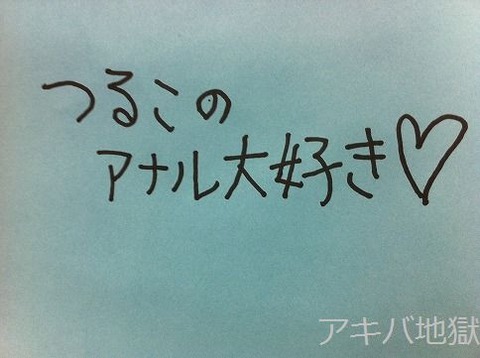 つるこの
アナル大好き♡
アキバ地獄